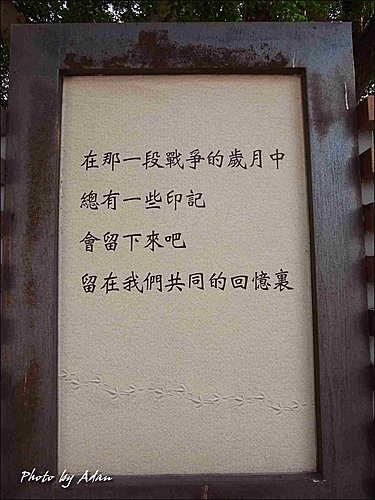 在那一段戰爭的歲月中
總有一些印記
會留下來吧
留在我們共同的回憶裏
Photo by Adan